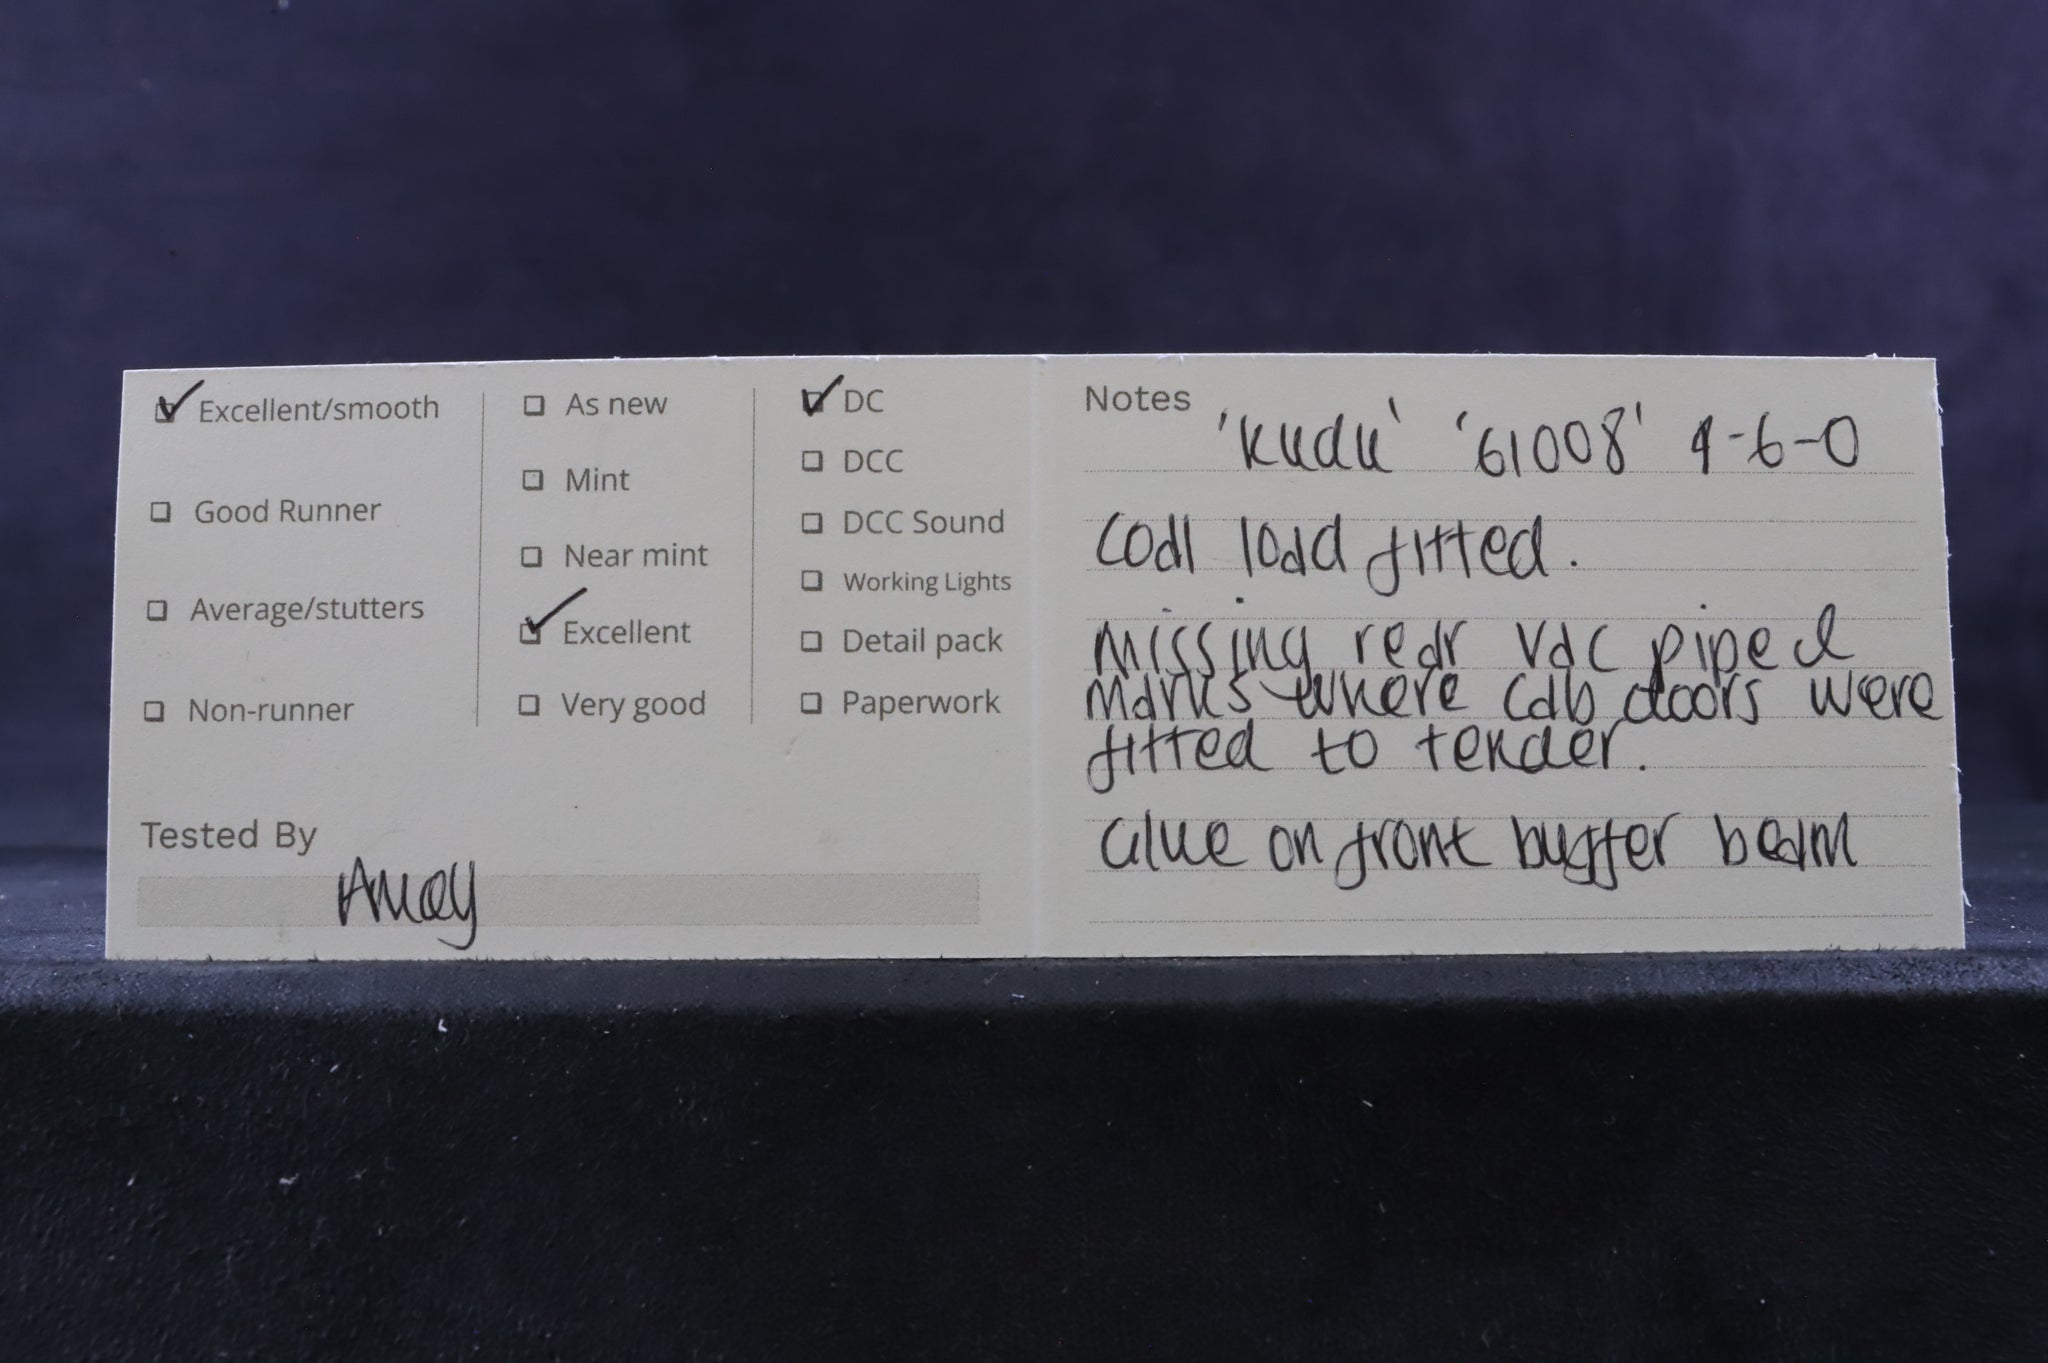 Excellent/smooth
Good Runner
Average/stutters
Non-runner
As new
Mint
Near mint
Excellent
Very good
DC
DCC
DCC Sound
Working Lights
Detail pack
Paperwork
Tested By
Notes
'Kudu' '61008' 4-6-0
Coal load fitted.
Missing rear vac pipe &
marks where cab doors were
fitted to tender.
Glue on front buffer beam